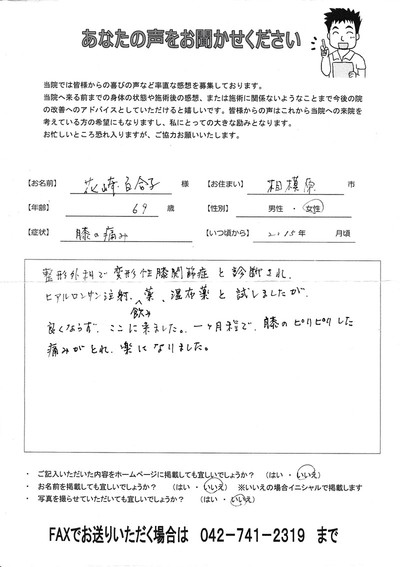 あなたの声をお聞かせください
当院では皆様からの喜びの声など率直な感想を募集しております。
当院へ来る前までの身体の状態や施術後の感想、または施術に関係ないようなことまで今後の院
の改善へのアドバイスとしていただけると嬉しいです。皆様からの声はこれから当院への来院を
考えている方の希望にもなりますし、私にとっての大きな励みとなります。
お忙しいところ恐れ入りますが、ご協力お願いいたします。
【お名前】 花崎百合子 様 【お住まい】 相模原 市
【年齢】 69 歳 【性別】 男性 ・ 女性
【症状】 膝の痛み 【いつ頃から】 2015年 月頃
整形外科で変形性膝関節症と診断され、
ヒアルロンサン注射、飲み薬、湿布薬と試しましたが、
良くならず、ここに来ました。一ヶ月程で、膝のピリピリした
痛みがとれ、楽になりました。
・ ご記入いただいた内容をホームページに掲載しても宜しいでしょうか? (はい ・ いいえ)
・ お名前を掲載しても宜しいでしょうか? (はい ・ いいえ) ※いいえの場合イニシャルで掲載します
・ 写真を撮らせていただいても宜しいでしょうか? (はい ・ いいえ)
FAXでお送りいただく場合は 042-741-2319 まで